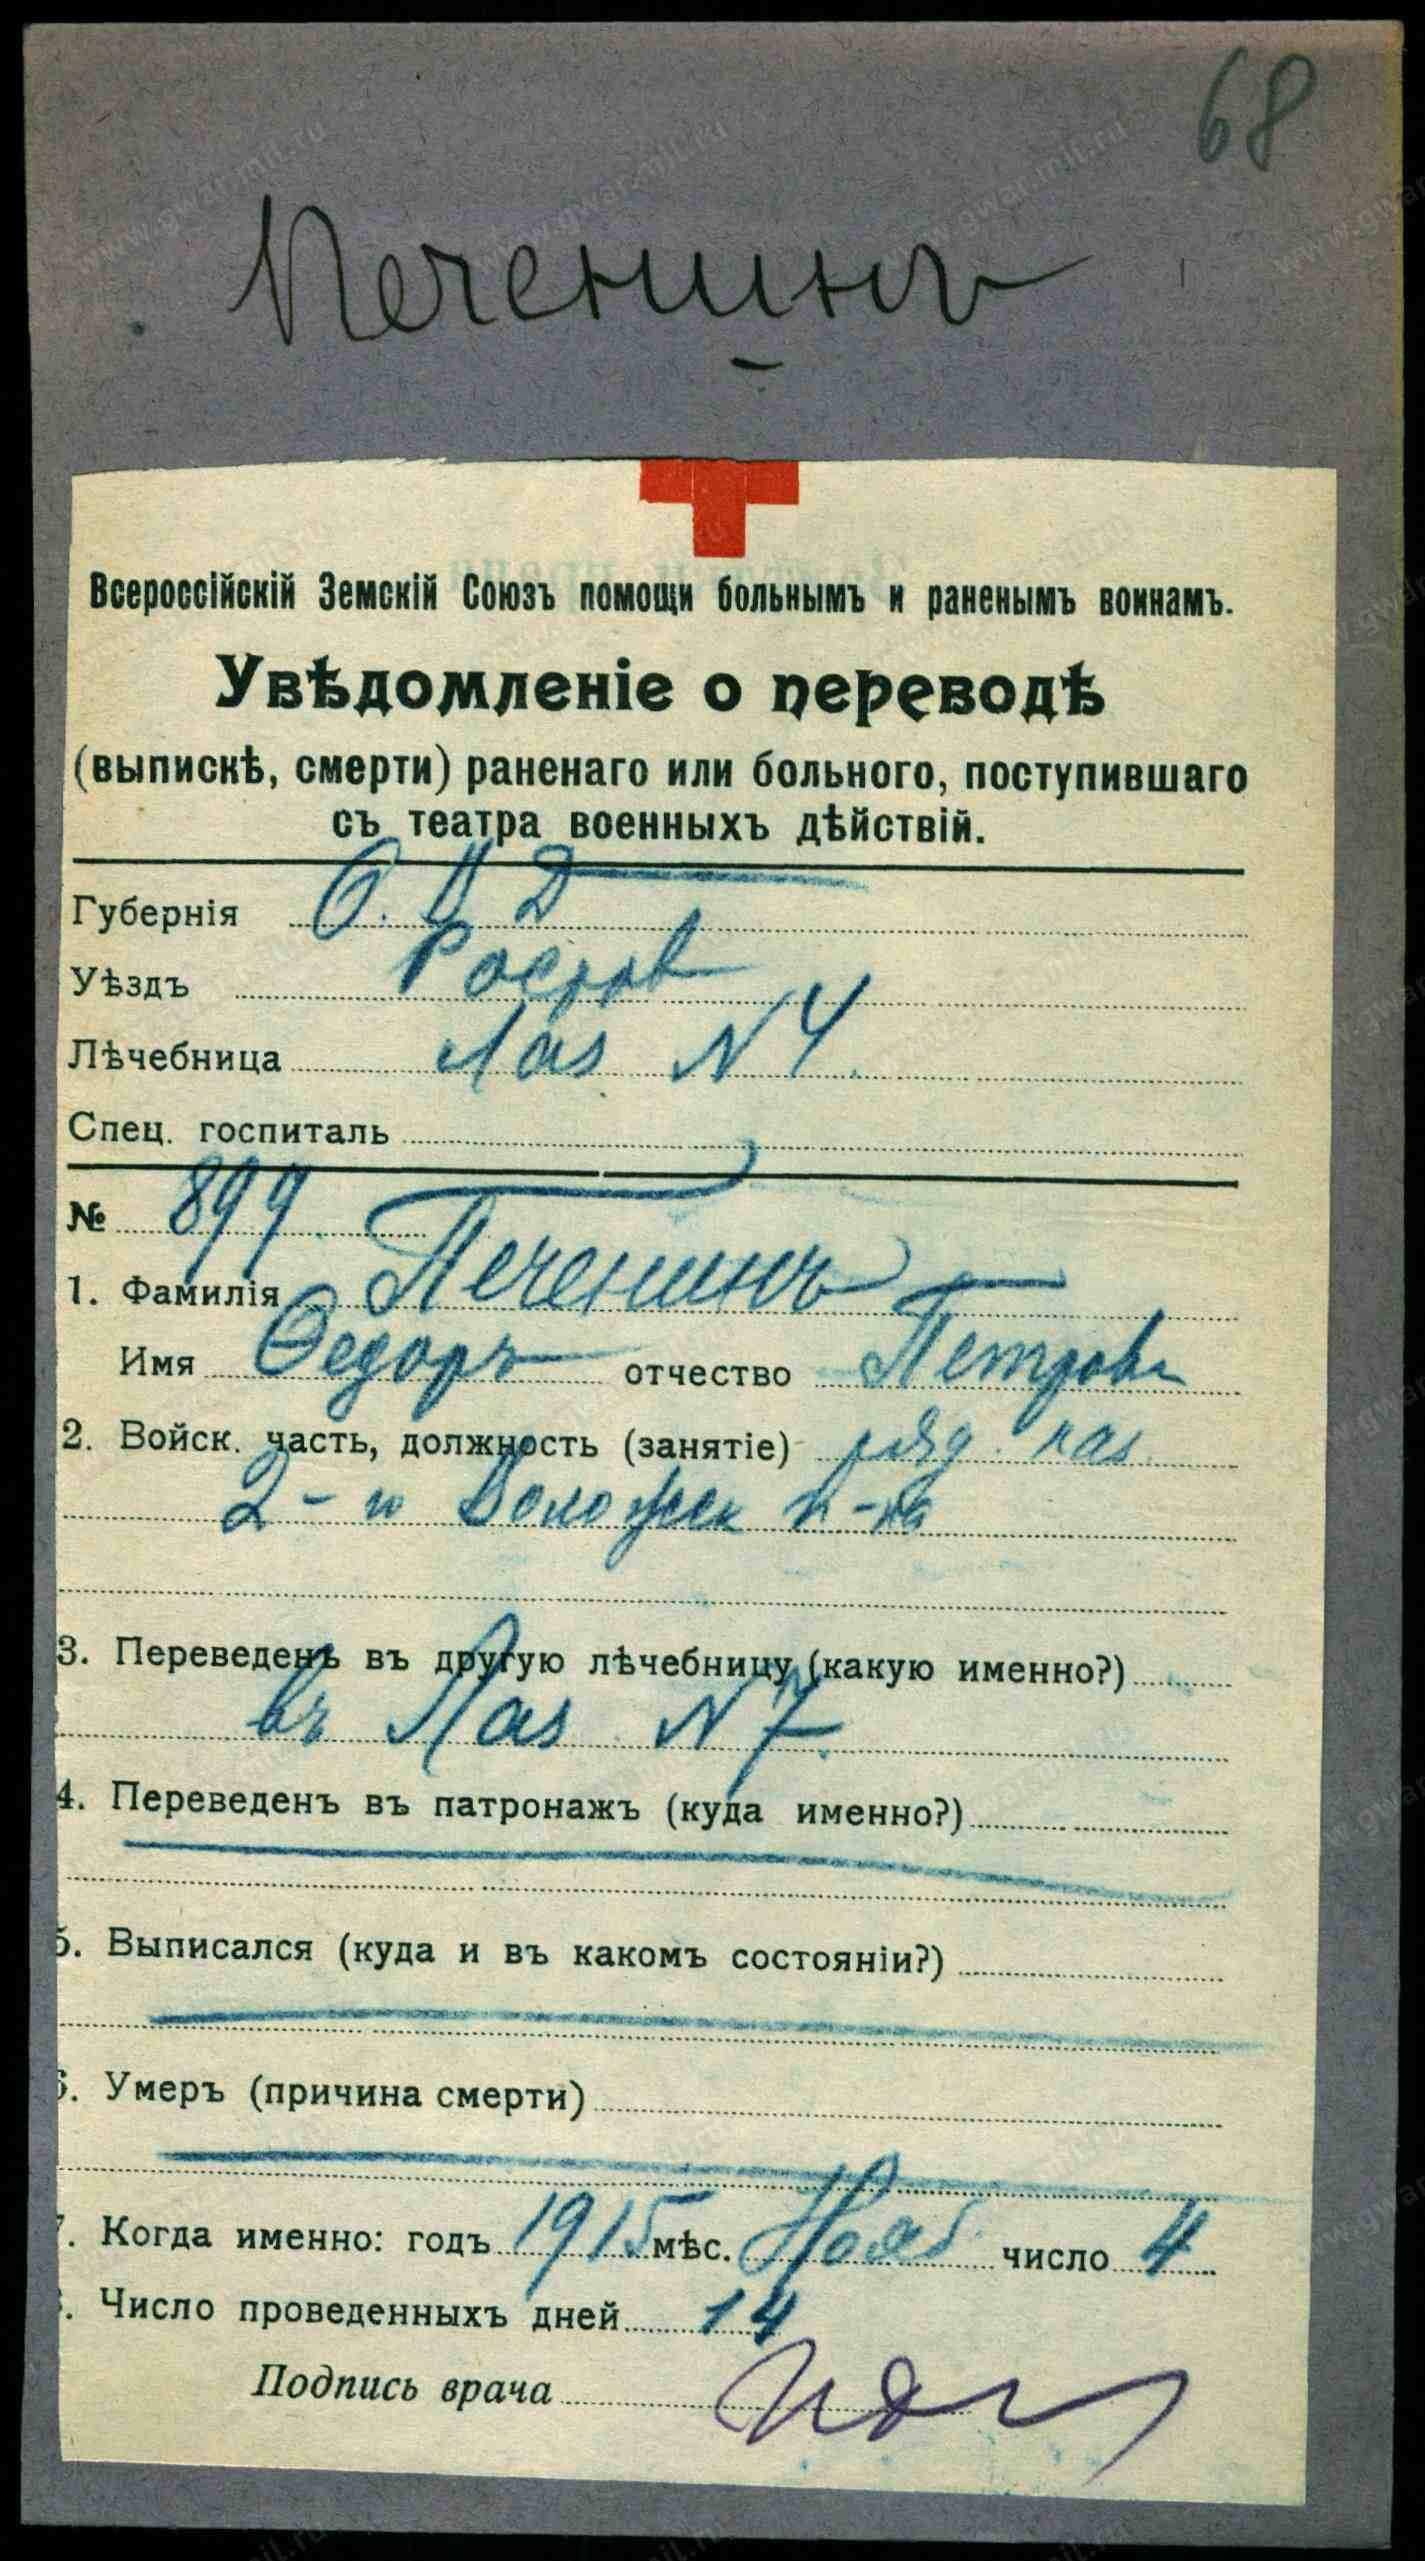 68
Печенинъ
Всероссійскій Земскій Союзъ помощи больнымъ и раненымъ воинамъ.
Увѣдомленіе о переводѣ
(выпискѣ, смерти) раненаго или больного, поступившаго
съ театра военныхъ дѣйствій.
Губернія О. В Д
Уѣздъ Ростов
Лѣчебница Лаз N 4.
Спец. госпиталь
№ 899
1. Фамилія Печенинъ
Имя Ѳедоръ отчество Петровъ
2. Войск. часть, должность (занятіе) ряд. каз.
2-го Волжск п-ка
3. Переведенъ въ другую лѣчебницу (какую именно?)
въ Лаз N 7.
4. Переведенъ въ патронажъ (куда именно?)
5. Выписался (куда и въ какомъ состояніи?)
6. Умеръ (причина смерти)
7. Когда именно: годъ 1915 мѣс. Нояб. число 4
. Число проведенныхъ дней 14
Подпись врача